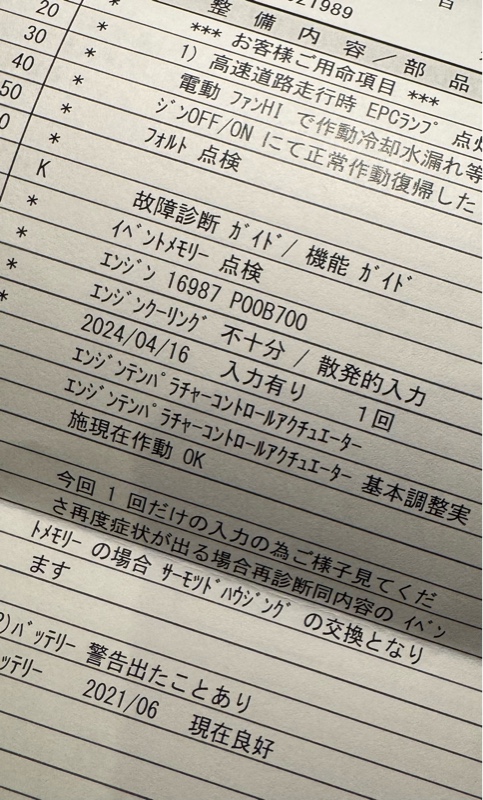 021989
整 備 内 容 ／ 部 品
20 * *** お客様ご用命項目 ***
30 * 1) 高速道路走行時 EPCﾗﾝﾌﾟ 点
40 * 電動 ﾌｧﾝHI で作動冷却水漏れ等
50 * ｼﾞﾝOFF/ON にて正常作動復帰した
0 * ﾌｫﾙﾄ 点検
*
K 故障診断 ｶﾞｲﾄﾞ/ 機能 ｶﾞｲﾄﾞ
* ｲﾍﾞﾝﾄﾒﾓﾘｰ 点検
* ｴﾝｼﾞﾝ 16987 P00B700
* ｴﾝｼﾞﾝｸｰﾘﾝｸﾞ 不十分 / 散発的入力
* 2024/04/16 入力有り 1回
ｴﾝｼﾞﾝﾃﾝﾊﾟﾗﾁｬｰｺﾝﾄﾛｰﾙｱｸﾁｭｴｰﾀｰ
ｴﾝｼﾞﾝﾃﾝﾊﾟﾗﾁｬｰｺﾝﾄﾛｰﾙｱｸﾁｭｴｰﾀｰ 基本調整実
施現在作動 OK
今回 1 回だけの入力の為ご様子見てくだ
さ再度症状が出る場合再診断同内容の ｲﾍﾞﾝ
ﾄﾒﾓﾘｰ の場合 ｻｰﾓﾂﾄﾞﾊｳｼﾞﾝｸﾞ の交換となり
ます
2)ﾊﾞｯﾃﾘｰ 警告出たことあり
ｯﾃﾘｰ 2021/06 現在良好